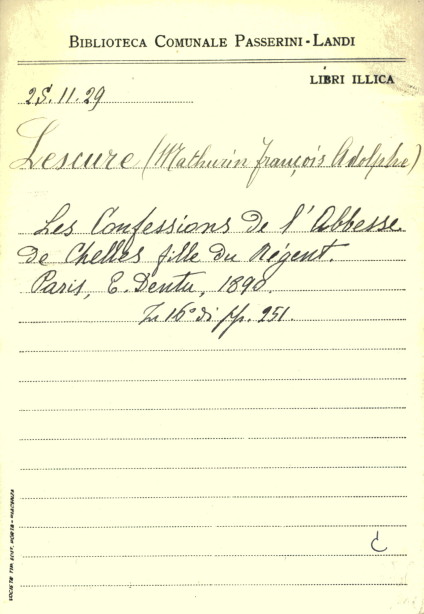 BIBLIOTECA COMUNALE PASSERINI-LANDI
LIBRI ILLICA
2S.11.29
Lescure (Mathurin François Adolphe)
Les Confessions de l'Abbesse
de Chelles fille du Régent.
Paris, E. Dentu, 1890.
In 16° di pp. 251.
C